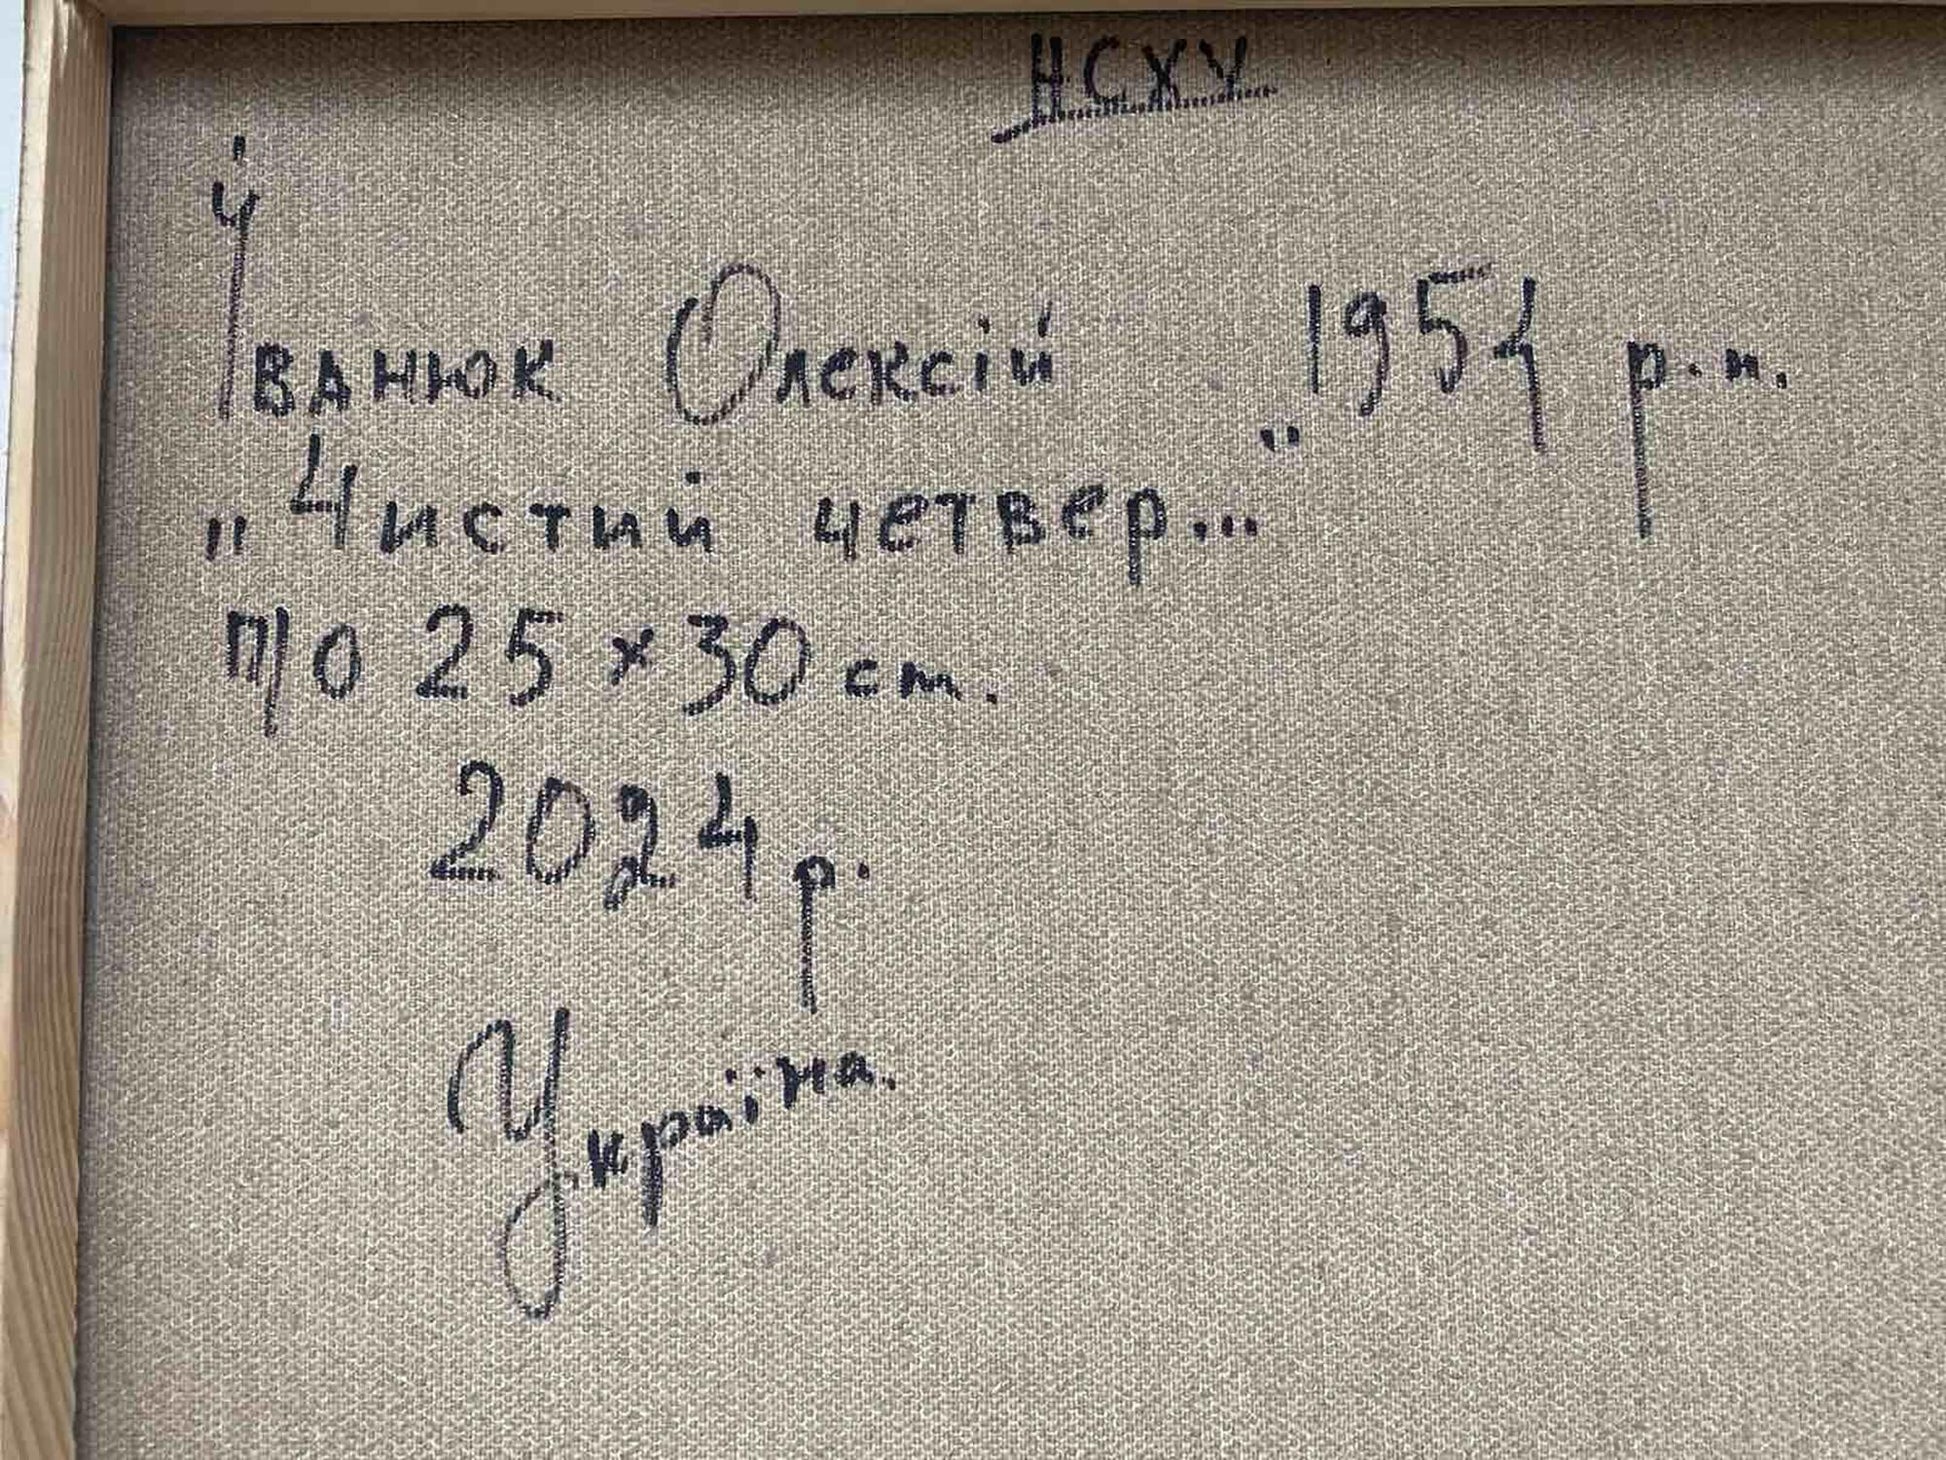 НСХУ
Іванюк Олексій 1954 р.н.
„Чистий четвер..."
п/о 25 х 30 см.
2024 р.
Україна.